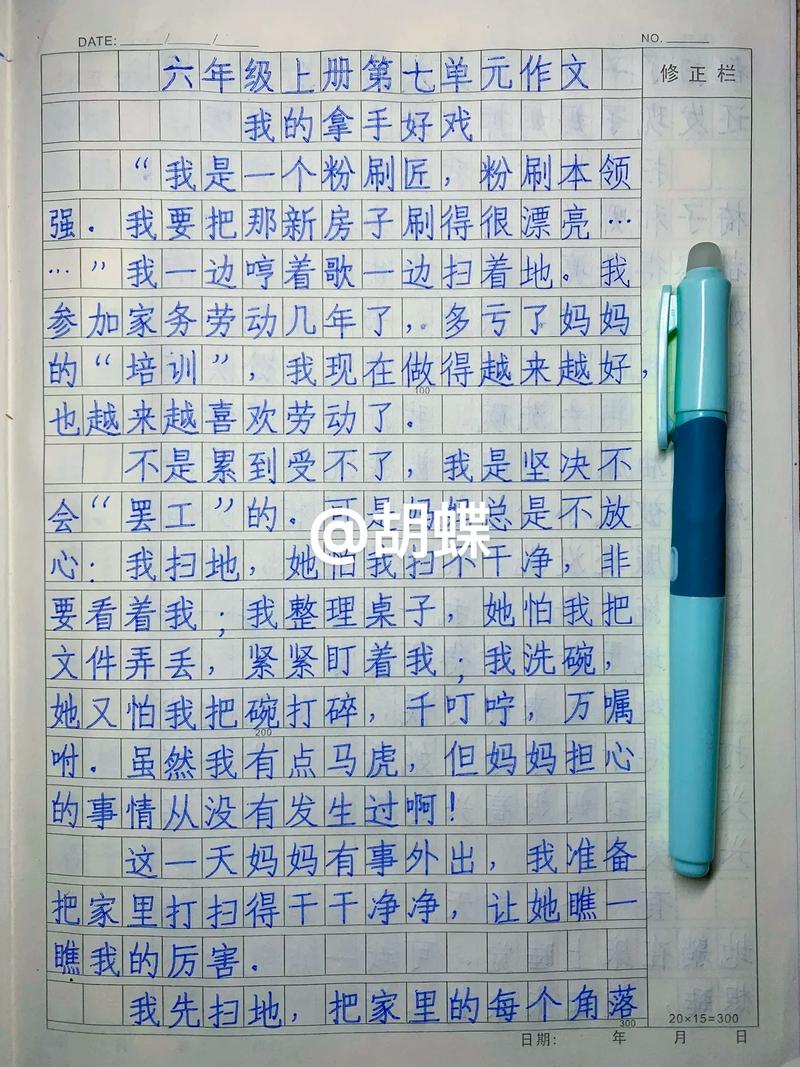 DATE: ____/____/____
NO.______
修正栏
六年级上册第七单元作文
我的拿手好戏
“我是一个粉刷匠，粉刷本领
强。我要把那新房子刷得很漂亮…
…”我一边哼着歌一边扫着地。我
参加家务劳动几年了，。多亏了妈妈
的“培训”，我现在做得越来越好，
100
也越来越喜欢劳动了。
不是累到受不了，我是坚决不
会“罢工”的。可是妈妈总是不放
@胡蝶
心：我扫地，她怕我扫不干净，非
要看着我；我整理桌子，她怕我把
文件弄丢，紧紧盯着我；我洗碗，
她又怕我把碗打碎，千叮咛，万嘱
200
咐。虽然我有点马虎，但妈妈担心
的事情从没有发生过啊！
这一天妈妈有事外出，我准备
把家里打扫得干干净净，让她瞧一
瞧我的厉害。
我先扫地，把家里的每个角落
300
20×15=300
日期： 年 月 日